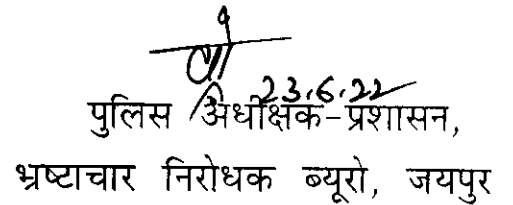 23.6.22
पुलिस अधीक्षक-प्रशासन,
भ्रष्टाचार निरोधक ब्यूरो, जयपुर